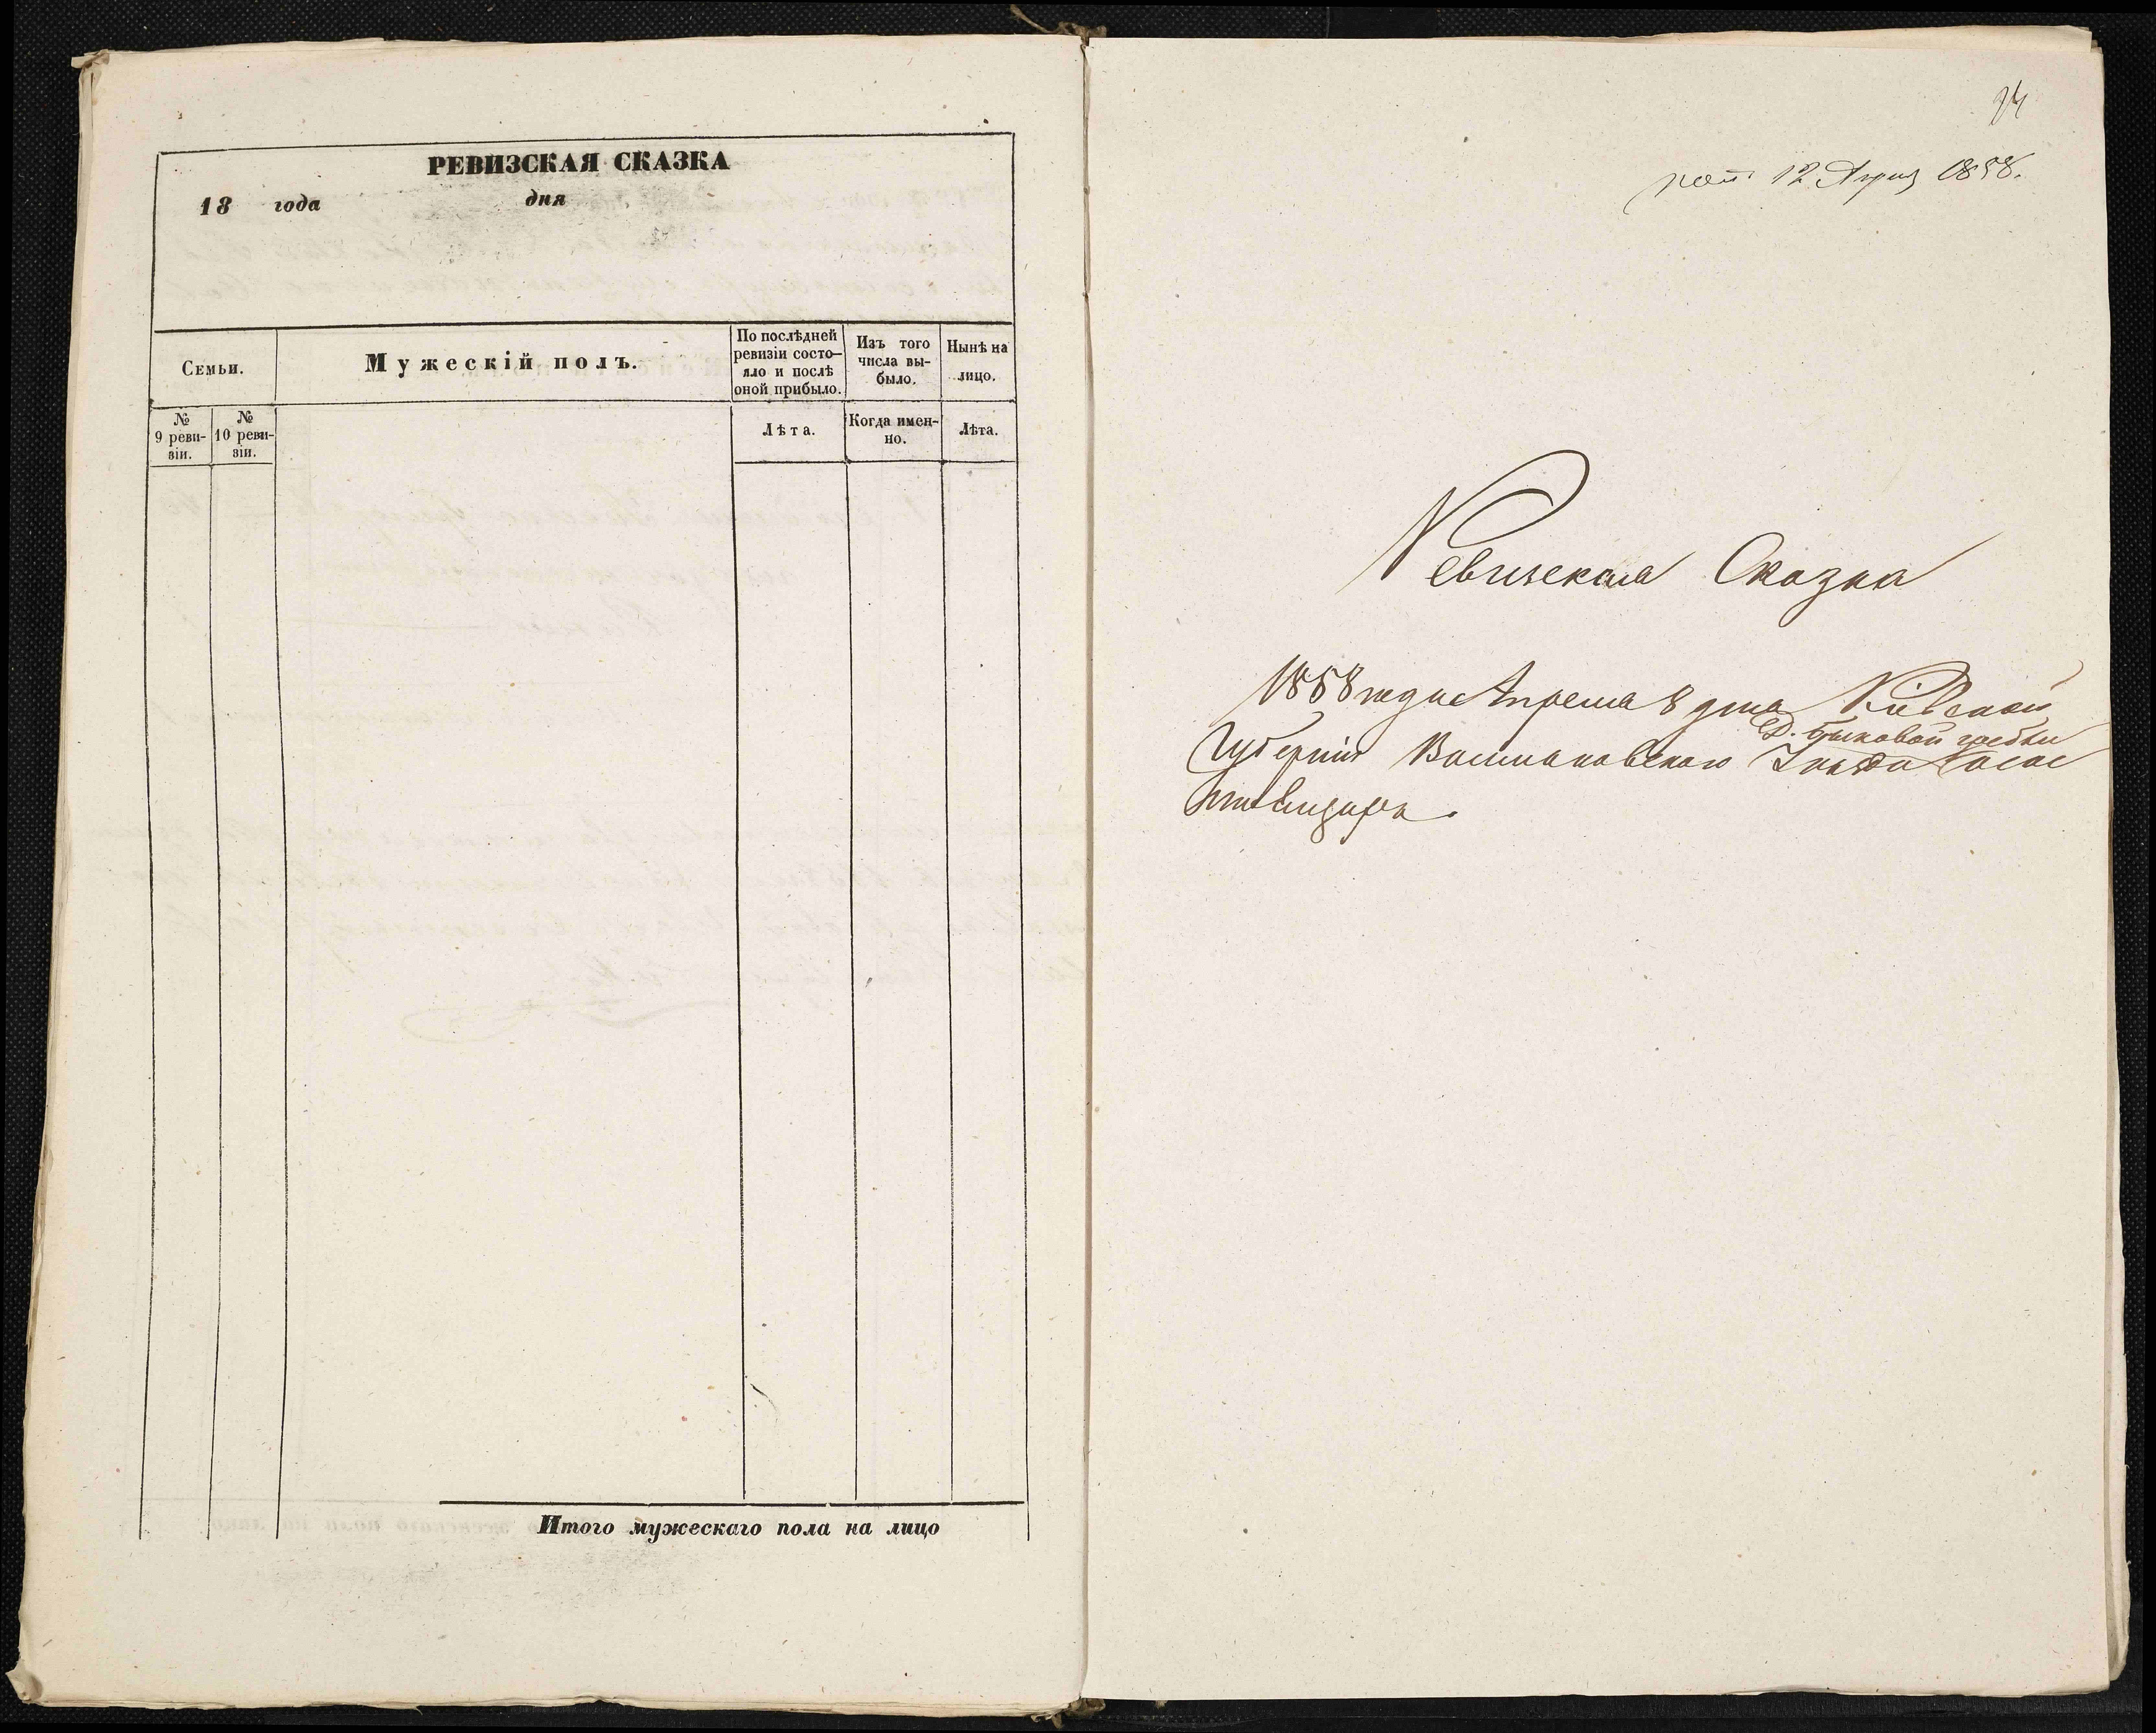 РЕВИЗСКАЯ СКАЗКА
18 года дня
Семьи.
Мужескій полъ.
По послѣдней
ревизіи состо-
яло и послѣ
оной прибыло.
Изъ того
числа вы-
было.
Нынѣ на
лицо.
№
9 реви-
зіи.
№
10 реви-
зіи.
Лѣта.
Когда имен-
но.
Лѣта.
Итого мужескаго пола на лицо
12 1858.
Ревизская Сказка
1858 года Апреля 8 дня Кіевской
Д. Быковой гребли
Губерніи Васильковскаго Уезда